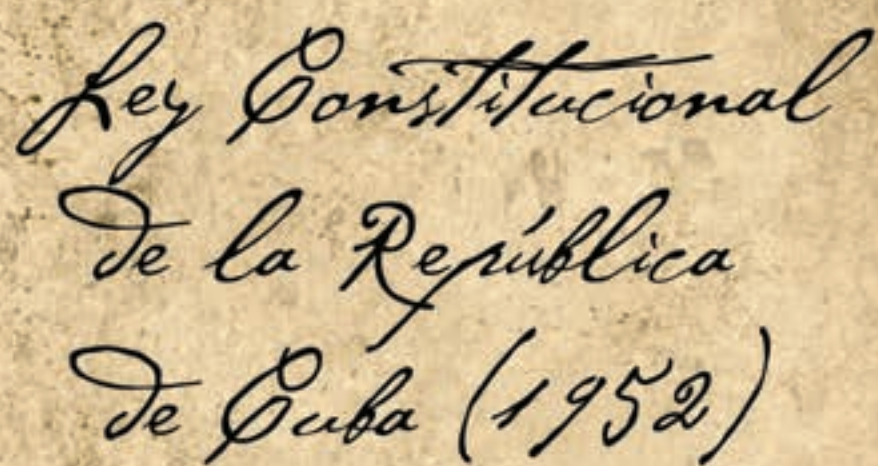 Ley Constitucional
de la República
de Cuba (1952)